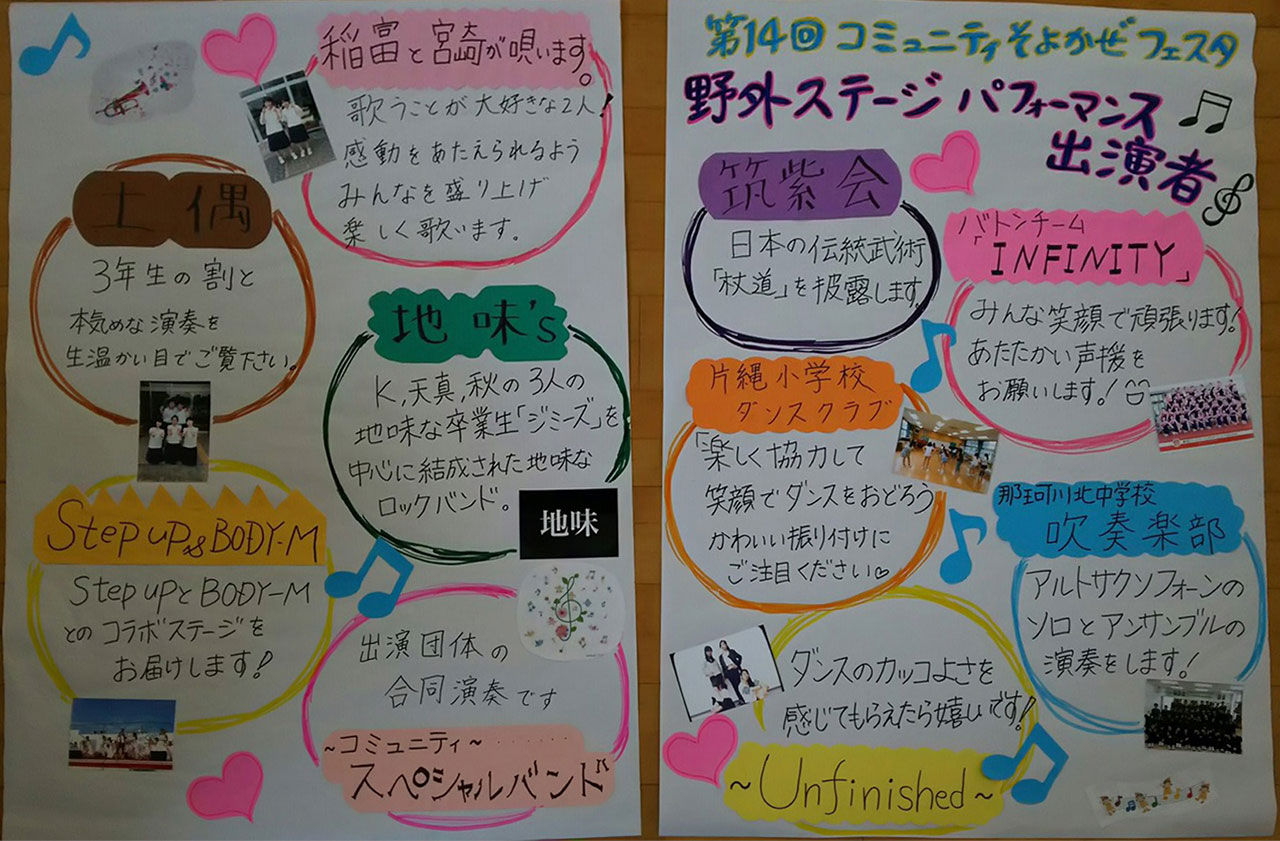 第14回 コミュニティそよかぜフェスタ
野外ステージ パフォーマンス
出演者
筑紫会
日本の伝統武術
「杖道」を披露します
バトンチーム
「INFINITY」
みんな笑顔で頑張ります!
あたたかい声援を
お願いします!
片縄小学校
ダンスクラブ
「楽しく協力して
笑顔でダンスをおどろう
かわいい振り付けに
ご注目ください♡
那珂川北中学校
吹奏楽部
アルトサクソフォーンの
ソロとアンサンブルの
演奏をします!
ダンスのカッコよさを
感じてもらえたら嬉しいです!
~Unfinished~
稲富と宮崎が唄います。
歌うことが大好きな2人!
感動をあたえられるよう
みんなを盛り上げ
楽しく歌います。
土偶
3年生の割と
本気めな演奏を
生温かい目でご覧下さい。
地味's
K,天真,秋の3人の
地味な卒業生「ジミーズ」を
中心に結成された地味な
ロックバンド。
地味
Step up&BODY-M
Step upとBODY-M
とのコラボステージを
お届けします!
出演団体の
合同演奏です
~コミュニティ~
スペシャルバンド